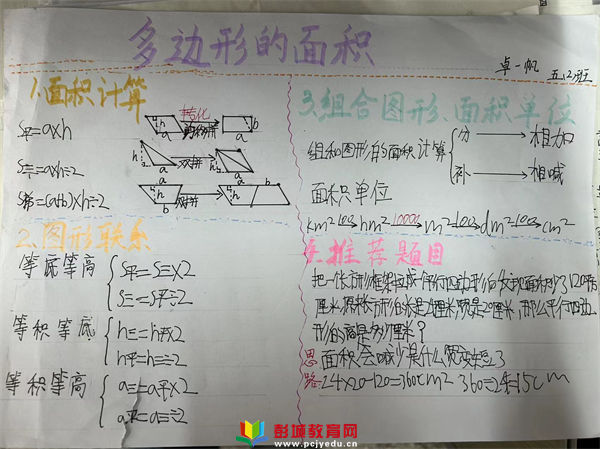 多边形的面积
卓一帆 五.(2)班
1.面积计算
S平=a×h
转化
S三=a×h÷2
双拼
S梯=(a+b)×h÷2
双拼
2.图形联系
等底等高
S平=S三×2
S三=S平÷2
等积等底
h三=h平×2
h平=h三÷2
等积等高
a三=a平×2
a平=a三÷2
3.组合图形、面积单位
组和图形的面积计算
分 相加
补 相喊
面积单位
km² 100 hm² 10000 m² 100 dm² 100 cm²
4.推荐题目
把一个长方形框架拉成一个平行四边形后发现面积少了120平
厘米,原长方形的长是24厘米,宽是20厘米,那么平行四边
形的高是多少厘米?
思路: 面积会减少是什么宽变短了
24×20-120=360cm² 360÷24=15cm
彭城教育网
www.pcjyedu.cn